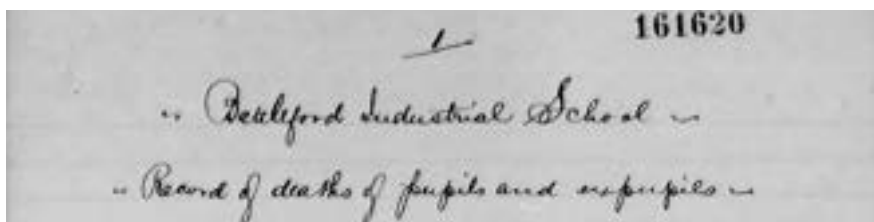 1 161620
" Battleford Industrial School "
" Record of deaths of pupils and expupils "